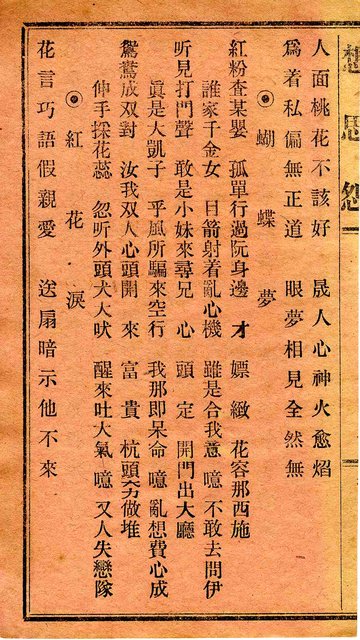 人面桃花不該好 晟人心神火愈焰
爲着私偏無正道 眼夢相見全然無
◉蝴蝶夢
紅粉查某嬰 孤單行過阮身邊 才 嫖緻 花容那西施
誰家千金女 目箭射着亂心機 雖是合我意 噫 不敢去問伊
听見打門聲 敢是小妹來尋兄 心 頭定 開門出大廳
眞是大凱子 乎風所騙來空行 我那卽呆命 噫 亂想費心成
鴛鴦成双對 汝我双人心頭開 來 富貴 枕頭夯做堆
伸手採花蕊 忽听外頭犬大吠 醒來吐大氣 噫 又人失戀隊
◉紅花淚
花言巧語假親愛 送扇暗示他不來